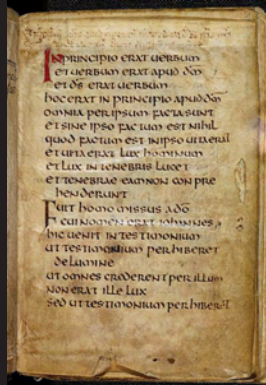 IN PRINCIPIO ERAT UERBUM
ET UERBUM ERAT APUD DM
ET DS ERAT UERBUM
HOC ERAT IN PRINCIPIO APUD DM
OMNIA PER IPSUM FACTA SUNT
ET SINE IPSO FACTUM EST NIHIL
QUOD FACTUM EST IN IPSO UITA ERAT
ET UITA ERAT LUX HOMINUM
ET LUX IN TENEBRIS LUCET
ET TENEBRAE EAM NON CONPRE
HENDERUNT
FUIT HOMO MISSUS A DO
CUI NOMEN ERAT IOHANNES
HIC UENIT IN TESTIMONIUM
UT TESTIMONIUM PERHIBERET
DE LUMINE
UT OMNES CREDERENT PER ILLUM
NON ERAT ILLE LUX
SED UT TESTIMONIUM PERHIBERET